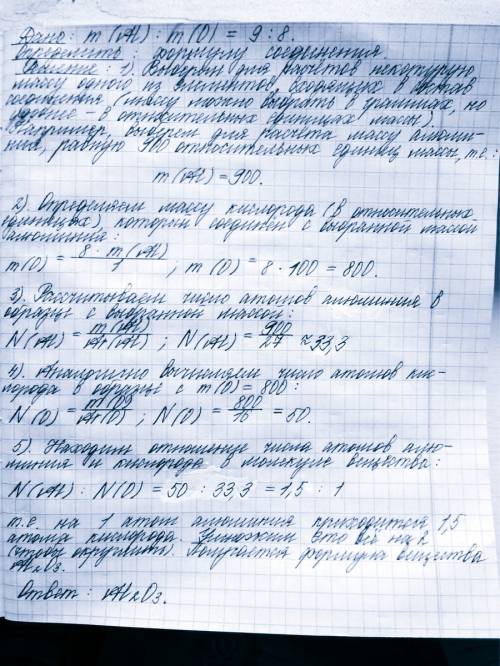 Дано: m(Al) : m(O) = 9 : 8.
Определить формулу соединения
Решение: 1) Выберем для расчётов некоторую
массу одного из элементов, входящих в состав
соединения (массу можно выбрать в граммах, но
удобнее - в относительных единицах массы).
Например, выберем для расчета массу алюми-
ния, равную 900 относительных единиц массы, т.е.:
m(Al) = 900.
2) Определяем массу кислорода (в относительных
единицах), который соединён с выбранной массой
алюминия:
m(O) = 8 · m(Al) / 9 ; m(O) = 8 · 100 = 800.
3). Рассчитываем число атомов алюминия в
образце с выбранной массой:
N(Al) = m(Al) / Ar(Al) ; N(Al) = 900 / 27 ≈ 33,3
4). Аналогично вычисляем число атомов кис-
лорода в образце с m(O) = 800:
N(O) = m(O) / Ar(O) ; N(O) = 800 / 16 = 50.
5). Находим отношение числа атомов алю-
миния и кислорода в молекуле вещества:
N(Al) : N(O) = 50 : 33,3 = 1,5 : 1
т.е. на 1 атом алюминия приходится 1,5
атома кислорода. Умножим это всё на 2
(чтобы округлить). Получается формула вещества
Al2O3.
Ответ: Al2O3.